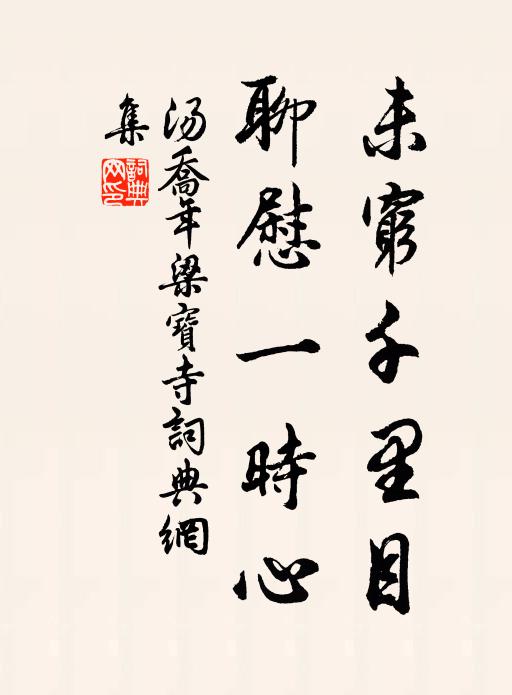 未窮千里目
聊慰一時心
湯喬年梁寶寺詞典網
集
詞典網印